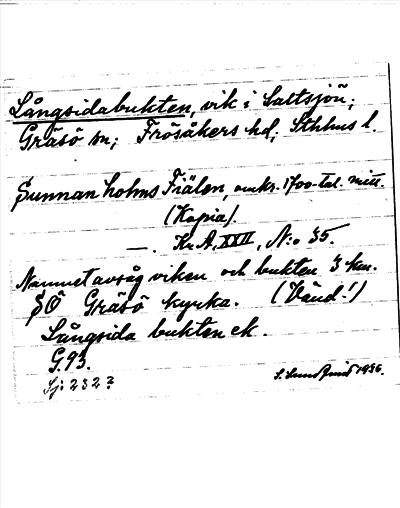 Långsidabukten, vik i Saltsjön;
Gräsö sn; Frösåkers hd; Sthlms l.
Sunnan holms Fiälen, omkr. 1700-tal. mitt.
(Kopia).
—. Kr. A. XXII, N:o 35.
Namnet avsåg viken och bukten 3 km.
SÖ Gräsö kyrka. (Vänd!)
Långsida bukten ek.
G.93.
Sj: 232?
S. Lundqvist 1936.